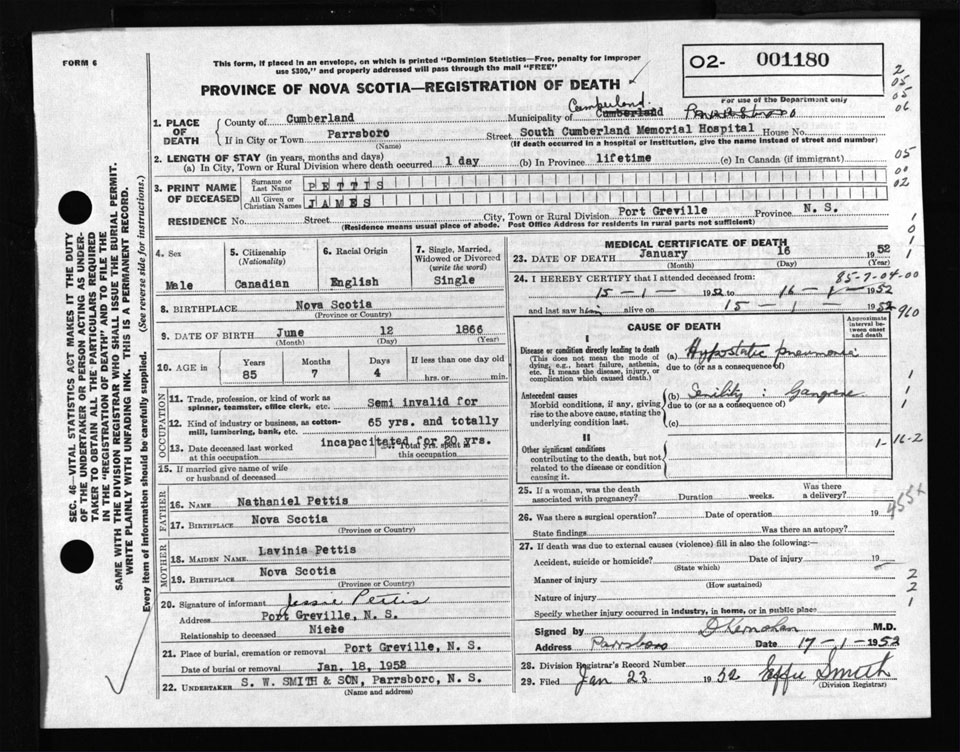 FORM 6
This form, if placed in an envelope, on which is printed "Dominion Statistics—Free, penalty for improper
use $300," and properly addressed will pass through the mail "FREE"
PROVINCE OF NOVA SCOTIA—REGISTRATION OF DEATH
O2- 001180
For use of the Department only
1. PLACE OF DEATH
County of Cumberland Municipality of Cumberland Cumberland
If in City or Town Parrsboro Street South Cumberland Memorial Hospital House No.
(Name) (If death occurred in a hospital or institution, give the name instead of street and number)
2. LENGTH OF STAY (in years, months and days)
(a) In City, Town or Rural Division where death occurred 1 day (b) In Province lifetime (c) In Canada (if immigrant)
3. PRINT NAME OF DECEASED
Surname or Last Name PETTIS
All Given or Christian Names JAMES
RESIDENCE No. Street City, Town or Rural Division Port Greville Province N. S.
(Residence means usual place of abode. Post Office Address for residents in rural parts not sufficient)
4. Sex Male
5. Citizenship (Nationality) Canadian
6. Racial Origin English
7. Single, Married, Widowed or Divorced (write the word) Single
8. BIRTHPLACE Nova Scotia
(Province or Country)
9. DATE OF BIRTH June 12 1866
(Month) (Day) (Year)
10. AGE in Years 85 Months 7 Days 4 If less than one day old hrs. or min.
OCCUPATION
11. Trade, profession, or kind of work as spinner, teamster, office clerk, etc. Semi invalid for
12. Kind of industry or business, as cotton-mill, lumbering, bank, etc. 65 yrs. and totally
13. Date deceased last worked at this occupation incapacitated for 20 yrs. Total yrs. spent in this occupation
15. If married give name of wife or husband of deceased
FATHER
16. NAME Nathaniel Pettis
17. BIRTHPLACE Nova Scotia
(Province or Country)
MOTHER
18. MAIDEN NAME Lavinia Pettis
19. BIRTHPLACE Nova Scotia
(Province or Country)
20. Signature of informant Jessie Pettis
Address Port Greville, N. S.
Relationship to deceased Niece
21. Place of burial, cremation or removal Port Greville, N. S.
Date of burial or removal Jan. 18, 1952
22. UNDERTAKER S. W. SMITH & SON, Parrsboro, N. S.
(Name and address)
MEDICAL CERTIFICATE OF DEATH
23. DATE OF DEATH January 16 1952
(Month) (Day) (Year)
85-7-04-00
24. I HEREBY CERTIFY that I attended deceased from:
15 - 1 - 1952 to 16 - 1 - 1952
and last saw him alive on 15 - 1 - 1952
CAUSE OF DEATH
Approximate interval between onset and death
I
Disease or condition directly leading to death
(This does not mean the mode of dying, e.g., heart failure, asthenia, etc. It means the disease, injury, or complication which caused death.)
(a) Hypostatic pneumonia
due to (or as a consequence of)
Antecedent causes
Morbid conditions, if any, giving rise to the above cause, stating the underlying condition last.
(b) Senility: Gangrene
due to (or as a consequence of)
(c)
II
Other significant conditions
contributing to the death, but not related to the disease or condition causing it.
1-16-2
25. If a woman, was the death associated with pregnancy? Duration weeks. Was there a delivery?
26. Was there a surgical operation? Date of operation 19
State findings Was there an autopsy?
27. If death was due to external causes (violence) fill in also the following:
Accident, suicide or homicide? Date of injury 19
(State which)
Manner of injury
(How sustained)
Nature of injury
Specify whether injury occurred in industry, in home, or in public place
Signed by D Kernohan M.D.
Address Parrsboro Date 17-1-1952
28. Division Registrar's Record Number
29. Filed Jan 23 1952 Effie Smith
(Division Registrar)
SEC. 46—VITAL STATISTICS ACT MAKES IT THE DUTY
OF THE UNDERTAKER OR PERSON ACTING AS UNDER-
TAKER TO OBTAIN ALL THE PARTICULARS REQUIRED
IN THE "REGISTRATION OF DEATH" AND TO FILE THE
SAME WITH THE DIVISION REGISTRAR WHO SHALL ISSUE THE BURIAL PERMIT.
WRITE PLAINLY WITH UNFADING INK. THIS IS A PERMANENT RECORD.
Every item of information should be carefully supplied. (See reverse side for instructions.)
2
05
05
06
05
00
02
1
0
1
1
960
1
1
1
2
2
1